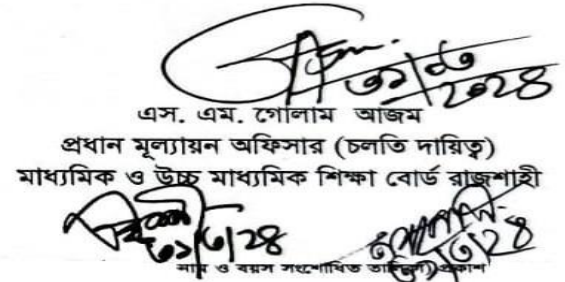 ৩১/০৩
২০২৪
এস. এম. গোলাম আজম
প্রধান মূল্যায়ন অফিসার (চলতি দায়িত্ব)
মাধ্যমিক ও উচ্চ মাধ্যমিক শিক্ষা বোর্ড রাজশাহী
৩১/৩/২৪
৩১/৩/২৪
নাম ও বয়স সংশোধিত প্রকাশ